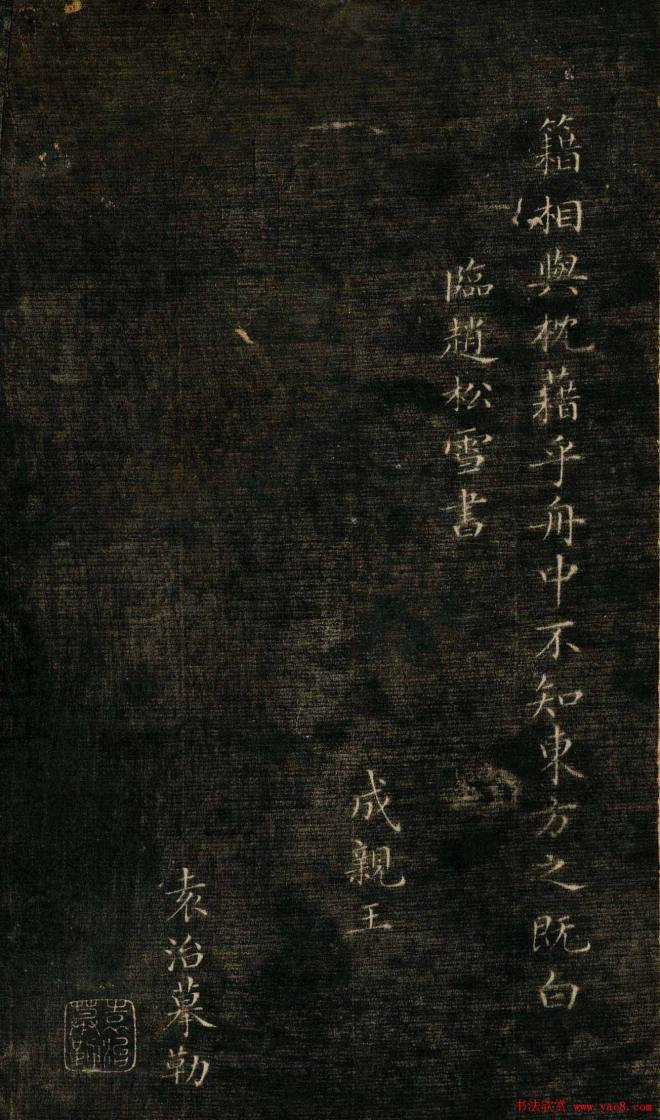 籍相與枕藉乎舟中不知東方之既白
臨趙松雪書
成親王
袁治摹勒
袁治摹勒
书法欣赏 www.yac8.com